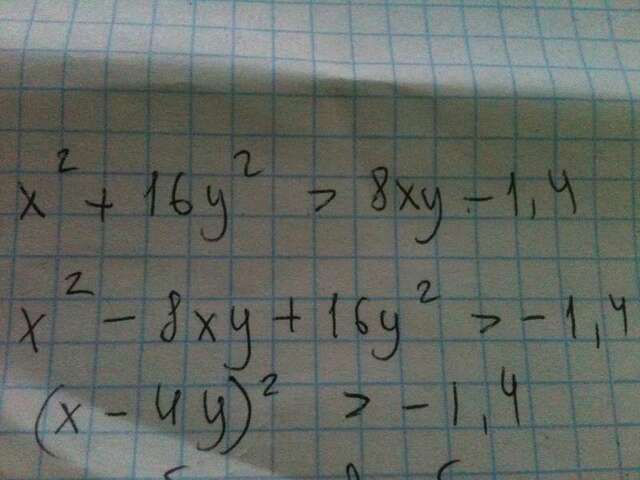 x² + 16y² > 8xy - 1,4
x² - 8xy + 16y² > - 1,4
(x - 4y)² > - 1,4